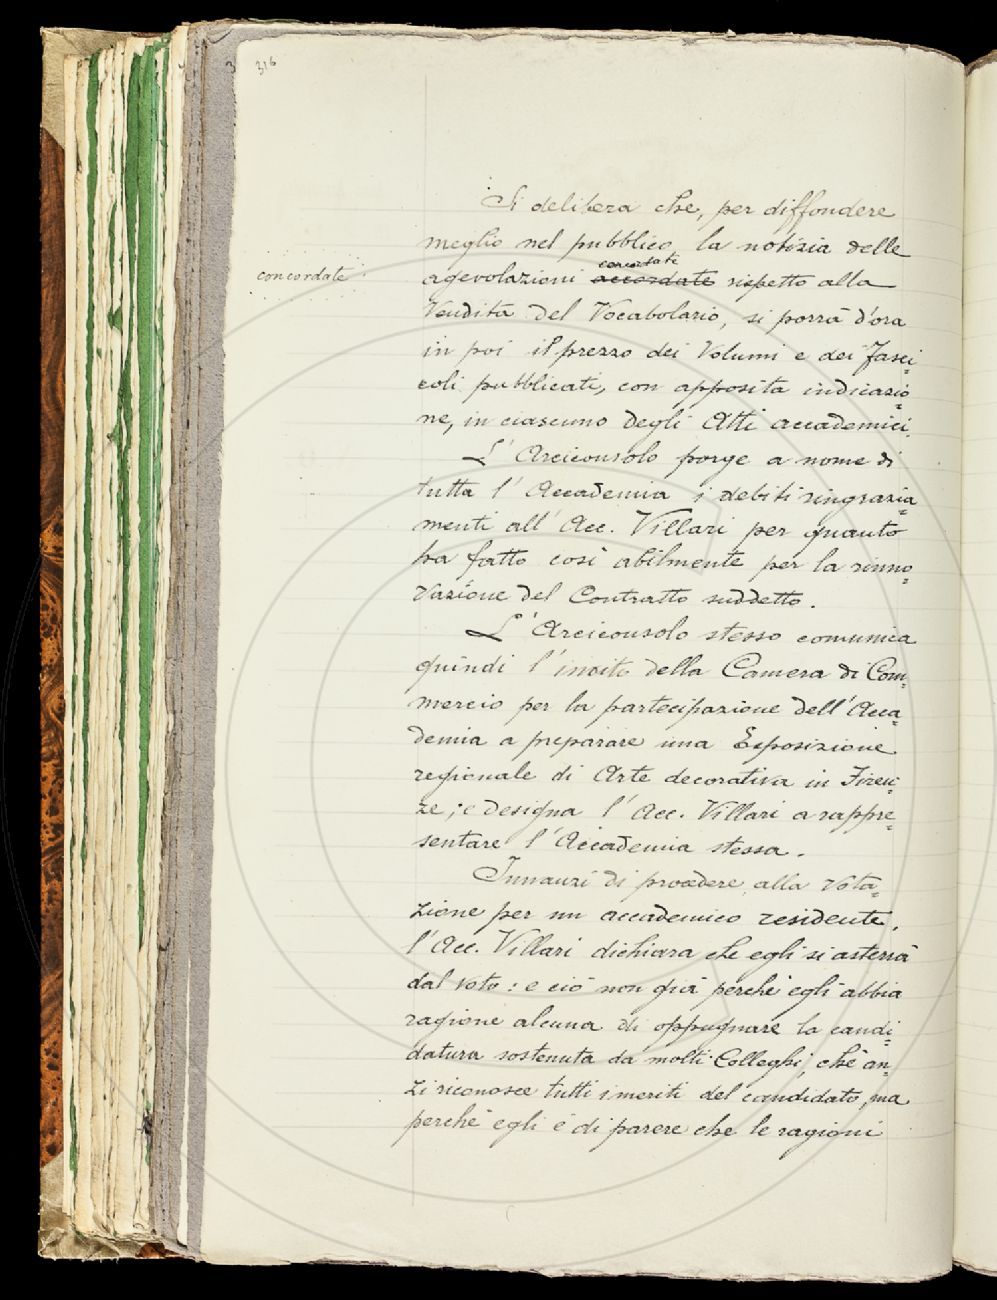 316
Si delibera che, per diffondere
meglio nel pubblico la notizia delle
concordate
concordate
agevolazioni accordate rispetto alla
Vendita del Vocabolario, si porrà d'ora
in poi il prezzo dei Volumi e dei Fasci=
coli pubblicati, con apposita indicazio=
ne, in ciascuno degli Atti accademici.
L'Arciconsolo porge a nome di
tutta l'Accademia i debiti ringrazia=
menti all'Acc. Villari per quanto
ha fatto così abilmente per la rinno=
vazione del Contratto suddetto.
L'Arciconsolo stesso comunica
quindi l'invito della Camera di Com=
mercio per la partecipazione dell'Acca=
demia a preparare una Esposizione
regionale di Arte decorativa in Firen=
ze; e designa l'Acc. Villari a rappre=
sentare l'Accademia stessa.
Innanzi di procedere alla vota=
zione per un accademico residente,
l'Acc. Villari dichiara che egli si asterrà
dal voto: e ciò non già perchè egli abbia
ragione alcuna di oppugnare la candi=
datura sostenuta da molti Colleghi, chè an=
zi riconosce tutti i meriti del candidato, ma
perchè egli è di parere che le ragioni